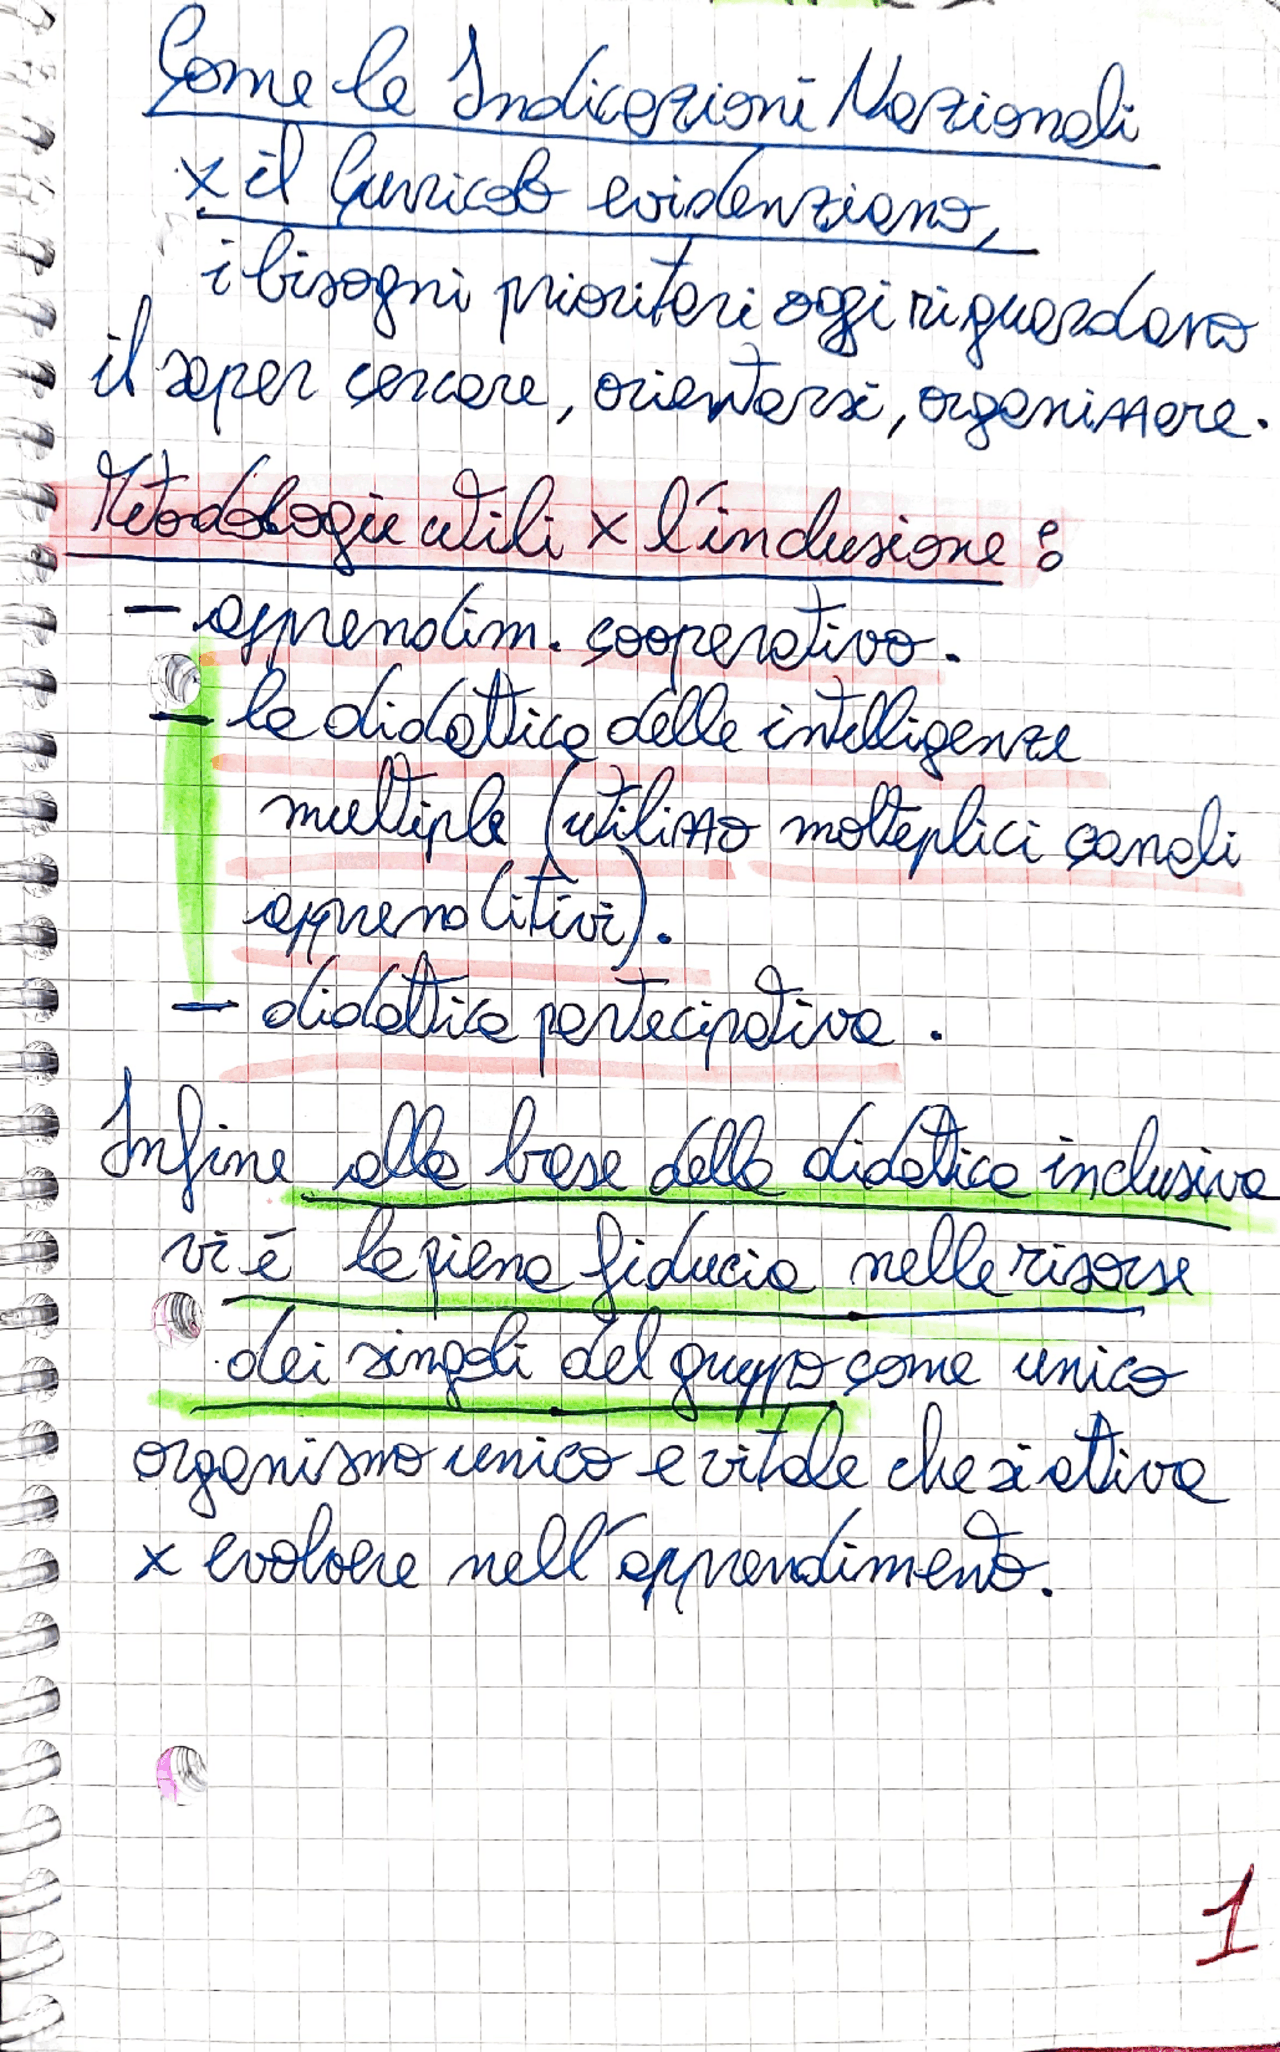 Come le Indicazioni Nazionali
x il Curricolo evidenziano,
i bisogni prioritari oggi riguardano
il saper cercare, orientarsi, organizzare.
Metodologie utili x l'inclusione:
- apprendim. cooperativo.
- la didattica delle intelligenze
multiple (utilizzo molteplici canali
apprenditivi).
- didattica partecipativa.
Infine alla base della didattica inclusiva
vi è la piena fiducia nelle risorse
dei singoli del gruppo come unico
organismo unico e vitale che si attiva
x evolvere nell'apprendimento.
1